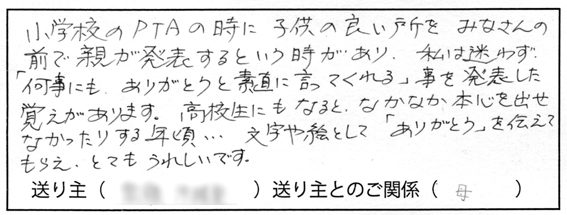 小学校のPTAの時に子供の良い所をみなさんの
前で親が発表するという時があり、私は迷わず、
「何事にも、ありがとうと素直に言ってくれる」事を発表した
覚えがあります。高校生にもなると、なかなか本心を出せ
なかったりする年頃… 文字や絵として「ありがとう」を伝えて
もらえ、とてもうれしいです。
送り主（　　　）送り主とのご関係（ 母 ）